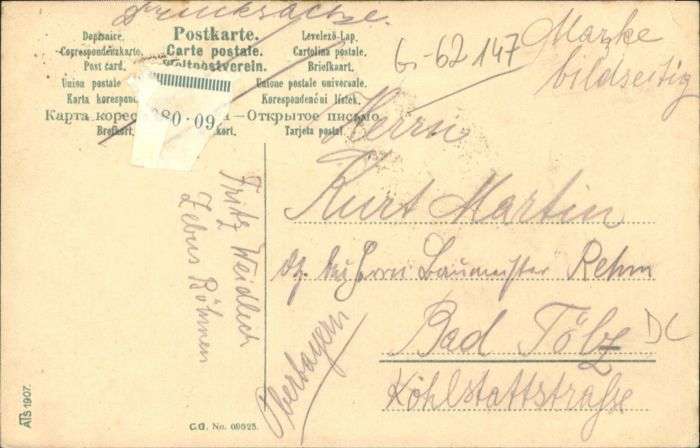 Drucksache.
Postkarte.
Carte postale.
Weltpostverein.
Dopisnice.
Correspondenzkarte.
Post card.
Union postale
Karta korespond
Levelező-Lap.
Cartolina postale.
Briefkaart.
Unione postale universale.
Korespondenční lístek.
Карта корес — Открытое письмо
Brefkort. kort. Tarjeta postal.
080·09
6-62 147
Marke
bildseitig
Herrn
Kurt Martin
bei Herrn Baumeister Rehm
Bad Tölz
Kohlstattstraße
Oberbayern
DC
Fritz Weidlich
Zebus Böhmen
ATS 1907.
C.G. No. 09825.